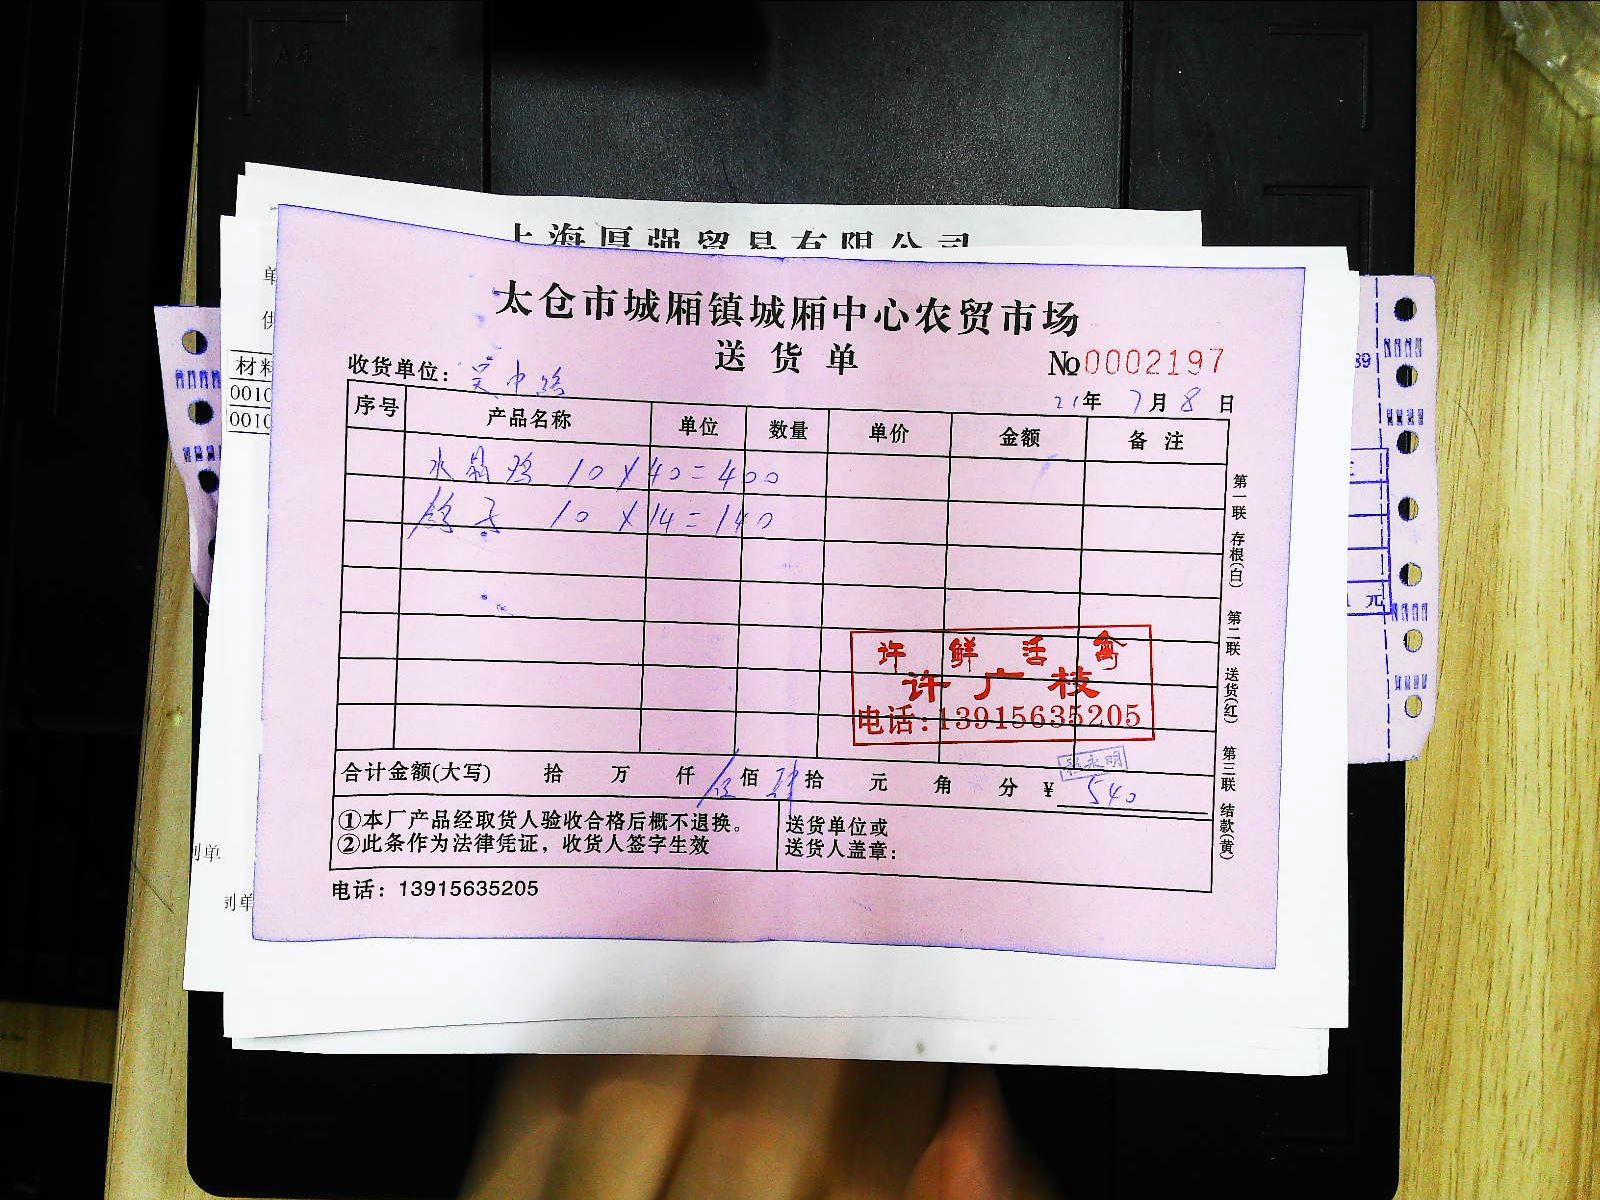 A4
上海厚强贸易有限公司
太仓市城厢镇城厢中心农贸市场
送货单
№0002197
收货单位：吴中路
21年7月8日
序号 产品名称 单位 数量 单价 金额 备注
水晶鸡 10×40=400
鸽子 10×14=140
许鲜活禽
许广枝
电话:13915635205
合计金额(大写) 拾 万 仟 伍佰肆拾 元 角 分 ¥540
①本厂产品经取货人验收合格后概不退换。
②此条作为法律凭证，收货人签字生效
送货单位或
送货人盖章：
电话：13915635205
第一联 存根(白) 第二联 送货(红) 第三联 结款(黄)
单
供
材料
0010
0010
制单
制单
89
元